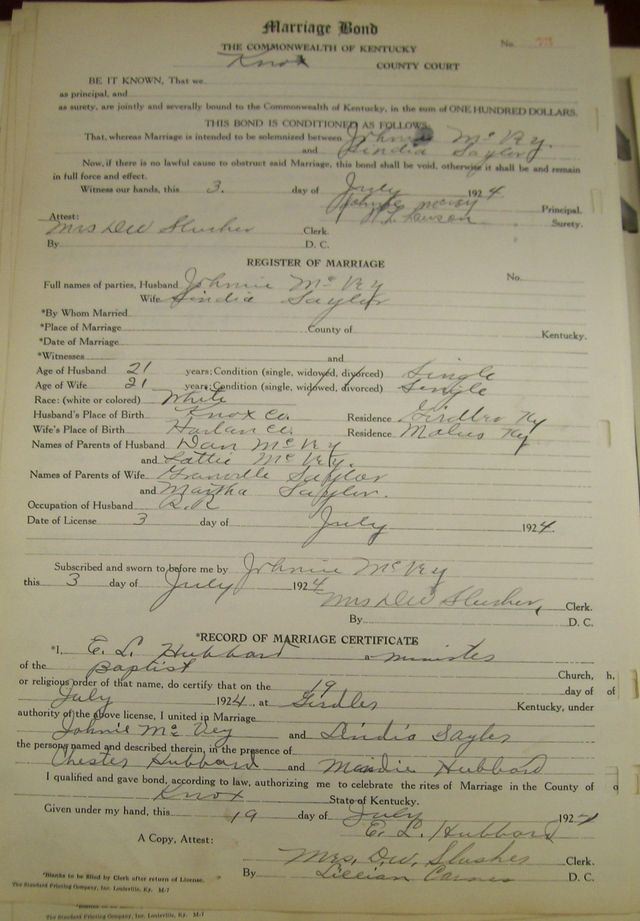 Marriage Bond
No.
THE COMMONWEALTH OF KENTUCKY
Knox COUNTY COURT
BE IT KNOWN, That we
as principal, and
as surety, are jointly and severally bound to the Commonwealth of Kentucky, in the sum of ONE HUNDRED DOLLARS.
THIS BOND IS CONDITIONED AS FOLLOWS
That, whereas Marriage is intended to be solemnized between Johnnie McVey.
and Sindia Saylor
Now, if there is no lawful cause to obstruct said Marriage, this bond shall be void, otherwise it shall be and remain
in full force and effect.
Witness our hands, this 3. day of July 1924
Johnie McVey Principal.
Attest: Surety.
Mrs D W Slusher Clerk.
By D. C.
REGISTER OF MARRIAGE
No.
Full names of parties, Husband Johnnie McVey
Wife Sindia Saylor
*By Whom Married
*Place of Marriage County of Kentucky.
*Date of Marriage
*Witnesses and
Age of Husband 21 years; Condition (single, widowed, divorced) Single
Age of Wife 21 years; Condition (single, widowed, divorced) Single
Race: (white or colored) White
Husband's Place of Birth Knox Co. Residence Ky
Wife's Place of Birth Harlan Co. Residence Molus Ky
Names of Parents of Husband Dan McVey
and Lattie McVey.
Names of Parents of Wife Granville Saylor
and Martha Saylor.
Occupation of Husband R.R
Date of License 3 day of July 1924.
Subscribed and sworn to before me by Johnnie McVey
this 3 day of July 1924
Mrs D W Slusher, Clerk.
By D. C.
*RECORD OF MARRIAGE CERTIFICATE
*I, E. L. Hubbard a minister
of the Baptist Church, h,
or religious order of that name, do certify that on the 19 day of of
July 1924, at Girdler Kentucky, under
authority of the above license, I united in Marriage
Johnie McVey and Sindia Sayler
the persons named and described therein, in the presence of
Chester Hubbard and Mandie Hubbard
I qualified and gave bond, according to law, authorizing me to celebrate the rites of Marriage in the County of o
Knox State of Kentucky.
Given under my hand, this 19 day of July 1924
E. L. Hubbard
A Copy, Attest:
Mrs. D.W. Slusher Clerk.
By Lillian D. C.
*Blanks to be filled by Clerk after return of License.
The Standard Printing Company, Inc. Louisville, Ky. M-7
The Standard Printing Company, Inc. Louisville, Ky. M-7